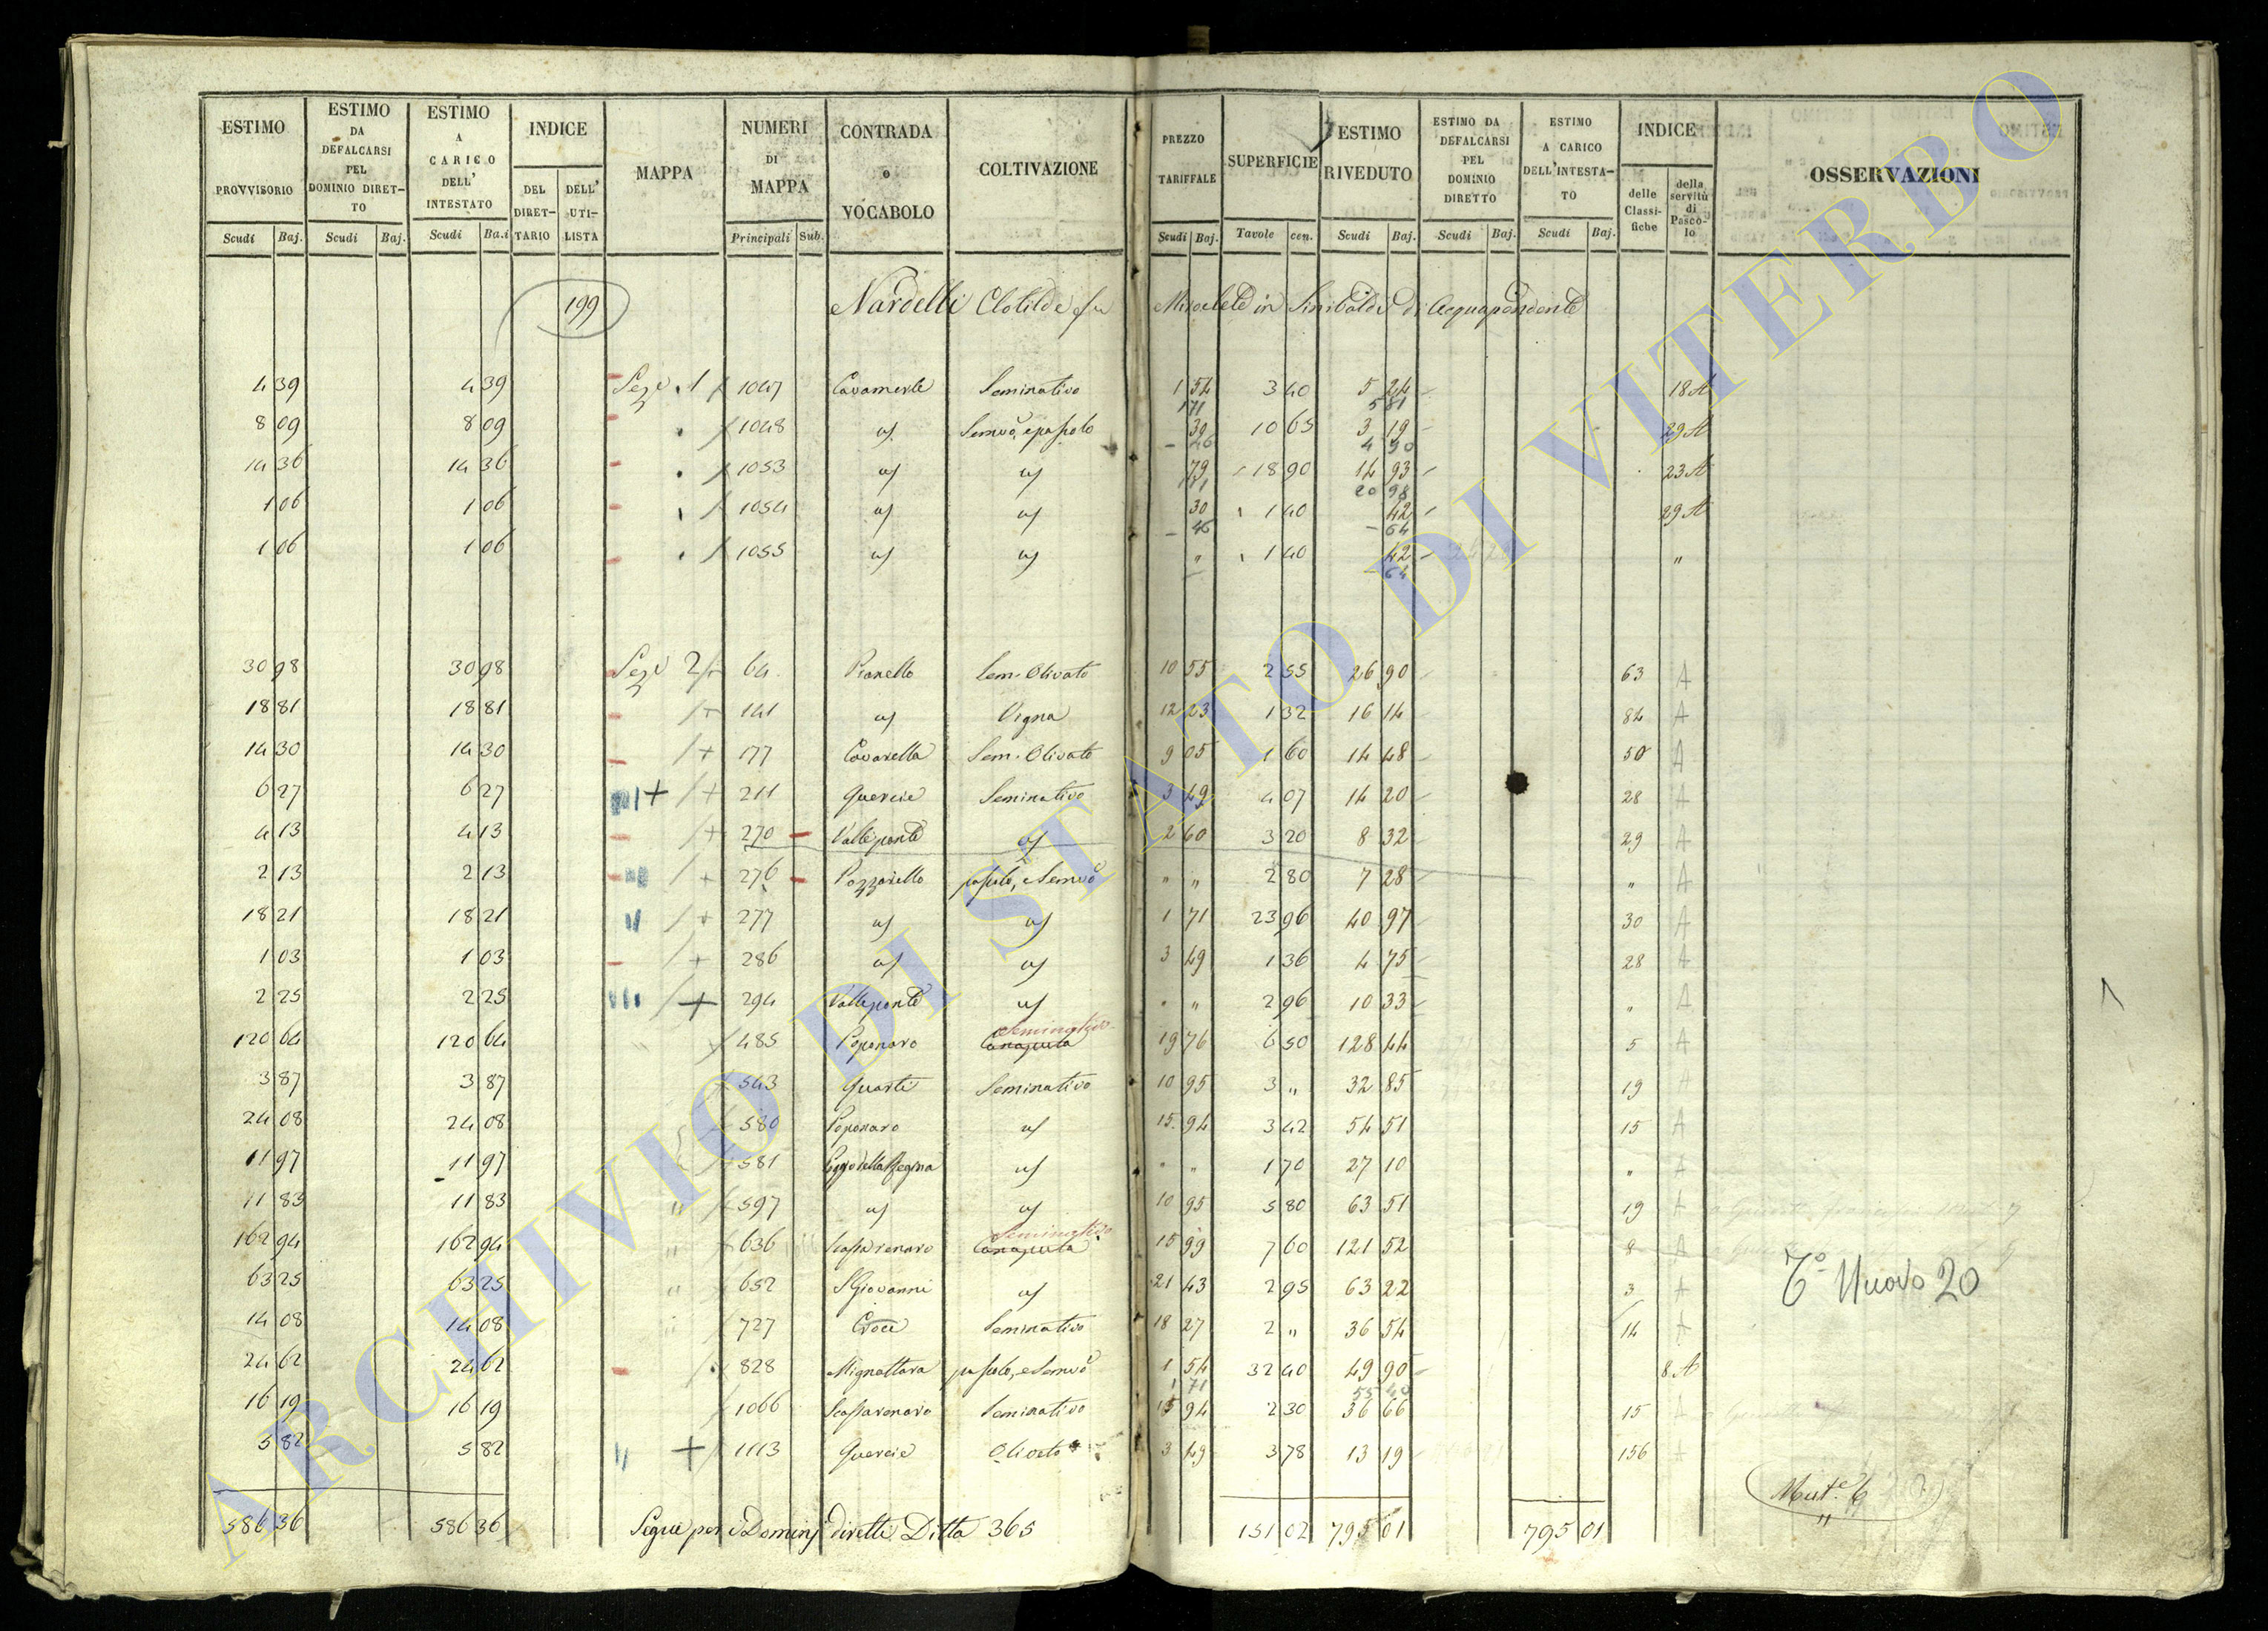 ESTIMO PROVVISORIO | ESTIMO DA DEFALCARSI PEL DOMINIO DIRET-TO | ESTIMO A CARICO DELL' INTESTATO | INDICE | MAPPA | NUMERI DI MAPPA | CONTRADA o VOCABOLO | COLTIVAZIONE | PREZZO TARIFFALE | SUPERFICIE | ESTIMO RIVEDUTO | ESTIMO DA DEFALCARSI PEL DOMINIO DIRETTO | ESTIMO A CARICO DELL'INTESTA-TO | INDICE | OSSERVAZIONI
DEL DIRET-TARIO | DELL' UTI-LISTA | delle Classi-fiche | della servitù di Pasco-lo
Scudi | Baj. | Scudi | Baj. | Scudi | Ba.i | Principali | Sub. | Scudi | Baj. | Tavole | cen. | Scudi | Baj. | Scudi | Baj. | Scudi | Baj.
199 Nardelli Clotilde fu in Sinibaldi di Acquapendente
4 39 | 4 39 | Sez.e 1 | 1047 | Seminativo | 1 54 | 3 40 | 5 24 | 18 A
1 71 | 5 81
8 09 | 8 09 | 1048 | 30 | 10 65 | 3 19 | 29 A
46 | 4 90
14 36 | 14 36 | 1053 | 79 | 18 90 | 14 93 | 23 A
20 98
1 06 | 1 06 | 1054 | 30 | 1 40 | 42 | 29 A
46 | 64
1 06 | 1 06 | 1055 | " | 1 40 | 42 | "
64
30 98 | 30 98 | Sez.e 2 | 64 | Pianello | Sem. Olivato | 10 55 | 2 55 | 26 90 | 63 | A
18 81 | 18 81 | 141 | Vigna | 12 23 | 1 32 | 16 14 | 84 | A
14 30 | 14 30 | 177 | Cavarella | Sem. Olivato | 9 05 | 1 60 | 14 48 | 50 | A
6 27 | 6 27 | 211 | Quercie | Seminativo | 3 49 | 4 07 | 14 20 | 28 | A
4 13 | 4 13 | 270 | Valleponte | 2 60 | 3 20 | 8 32 | 29 | A
2 13 | 2 13 | 276 | Pozzarello | " " | 2 80 | 7 28 | " | A
18 21 | 18 21 | 277 | 1 71 | 23 96 | 40 97 | 30 | A
1 03 | 1 03 | 286 | 3 49 | 1 36 | 4 75 | 28 | A
2 25 | 2 25 | 294 | Valleponte | " " | 2 96 | 10 33 | " | A
Seminativo
120 64 | 120 64 | 485 | Poponaro | Canapula | 19 76 | 6 50 | 128 44 | 5 | A
3 87 | 3 87 | 543 | Quarti | Seminativo | 10 95 | 3 " | 32 85 | 19 | A
24 08 | 24 08 | 580 | Poponaro | 15 94 | 3 42 | 54 51 | 15 | A
11 97 | 11 97 | 581 | Poggio della Regina | " " | 1 70 | 27 10 | " | A
11 83 | 11 83 | 597 | 10 95 | 5 80 | 63 51 | 19 | A
Seminativo
162 94 | 162 94 | 636 | Scassarenaro | Canapula | 15 99 | 7 60 | 121 52 | 8 | A
63 25 | 63 25 | 652 | S Giovanni | 21 43 | 2 95 | 63 22 | 3 | A
14 08 | 14 08 | 727 | Croce | Seminativo | 18 27 | 2 " | 36 54 | 14 | A
24 62 | 24 62 | 828 | Mignattara | 1 54 | 32 40 | 49 90 | 8 A
1 71 | 55 40
16 19 | 16 19 | 1066 | Scassarenaro | Seminativo | 15 94 | 2 30 | 36 66 | 15 | A
5 82 | 5 82 | 1113 | Quercie | Oliveto | 3 49 | 3 78 | 13 19 | 156 | A
586 36 | 586 36 | Segue per i Dominj diretti Ditta 365 | 151 02 | 795 01 | 795 01
T.o Nuovo 20
Mut.e 6
ARCHIVIO DI STATO DI VITERBO